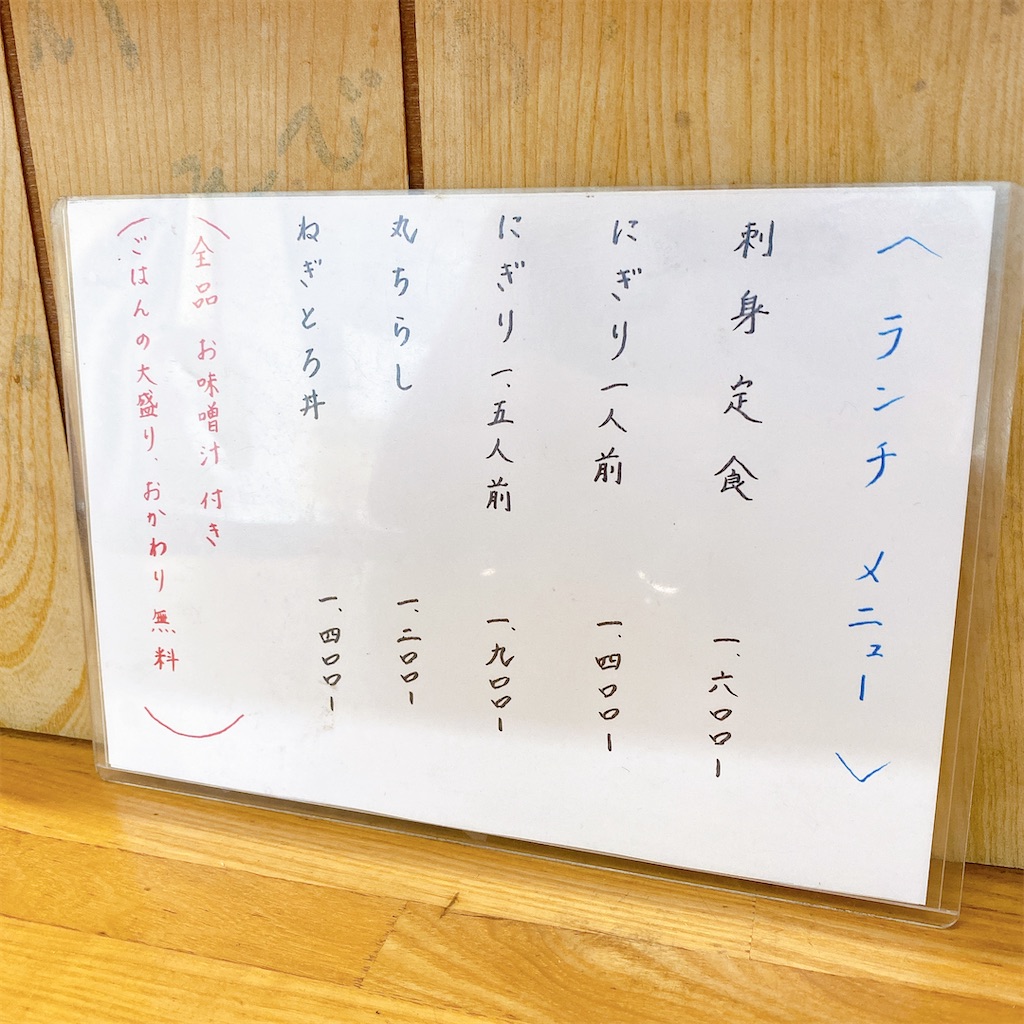 〈ランチ メニュー〉
刺身定食 一、六〇〇ー
にぎり一人前 一、四〇〇ー
にぎり一、五人前 一、九〇〇ー
丸ちらし 一、二〇〇ー
ねぎとろ丼 一、四〇〇ー
(全品 お味噌汁付き
ごはんの大盛り、おかわり無料)